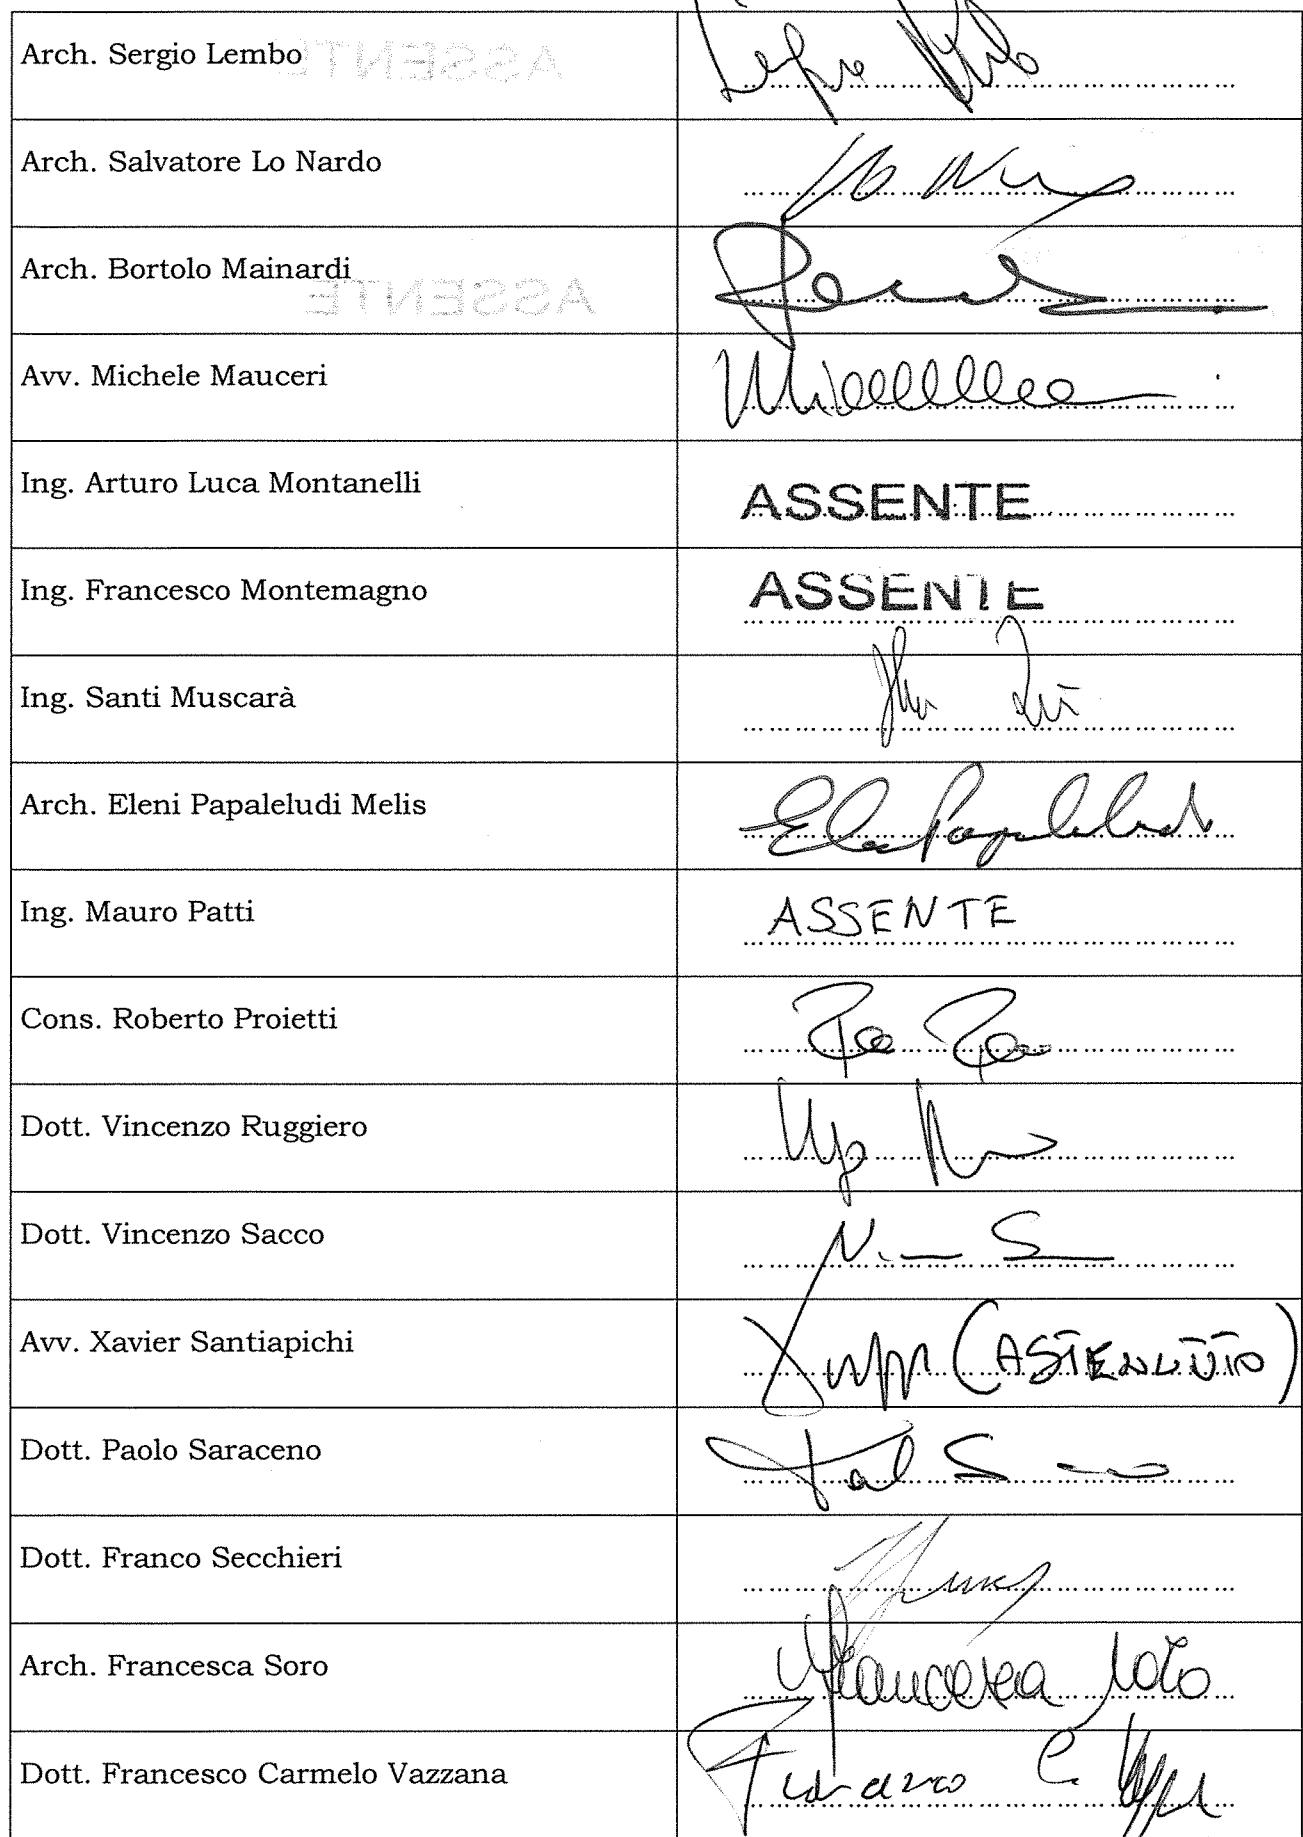 Arch. Sergio Lembo
ASSENTE
Arch. Salvatore Lo Nardo
Arch. Bortolo Mainardi
ASSENTE
Avv. Michele Mauceri
Ing. Arturo Luca Montanelli
ASSENTE
Ing. Francesco Montemagno
ASSENTE
Ing. Santi Muscarà
Arch. Eleni Papaleludi Melis
Ing. Mauro Patti
ASSENTE
Cons. Roberto Proietti
Dott. Vincenzo Ruggiero
Dott. Vincenzo Sacco
Avv. Xavier Santiapichi
(ASTENUTO)
Dott. Paolo Saraceno
Dott. Franco Secchieri
Arch. Francesca Soro
Francesca Soro
Dott. Francesco Carmelo Vazzana